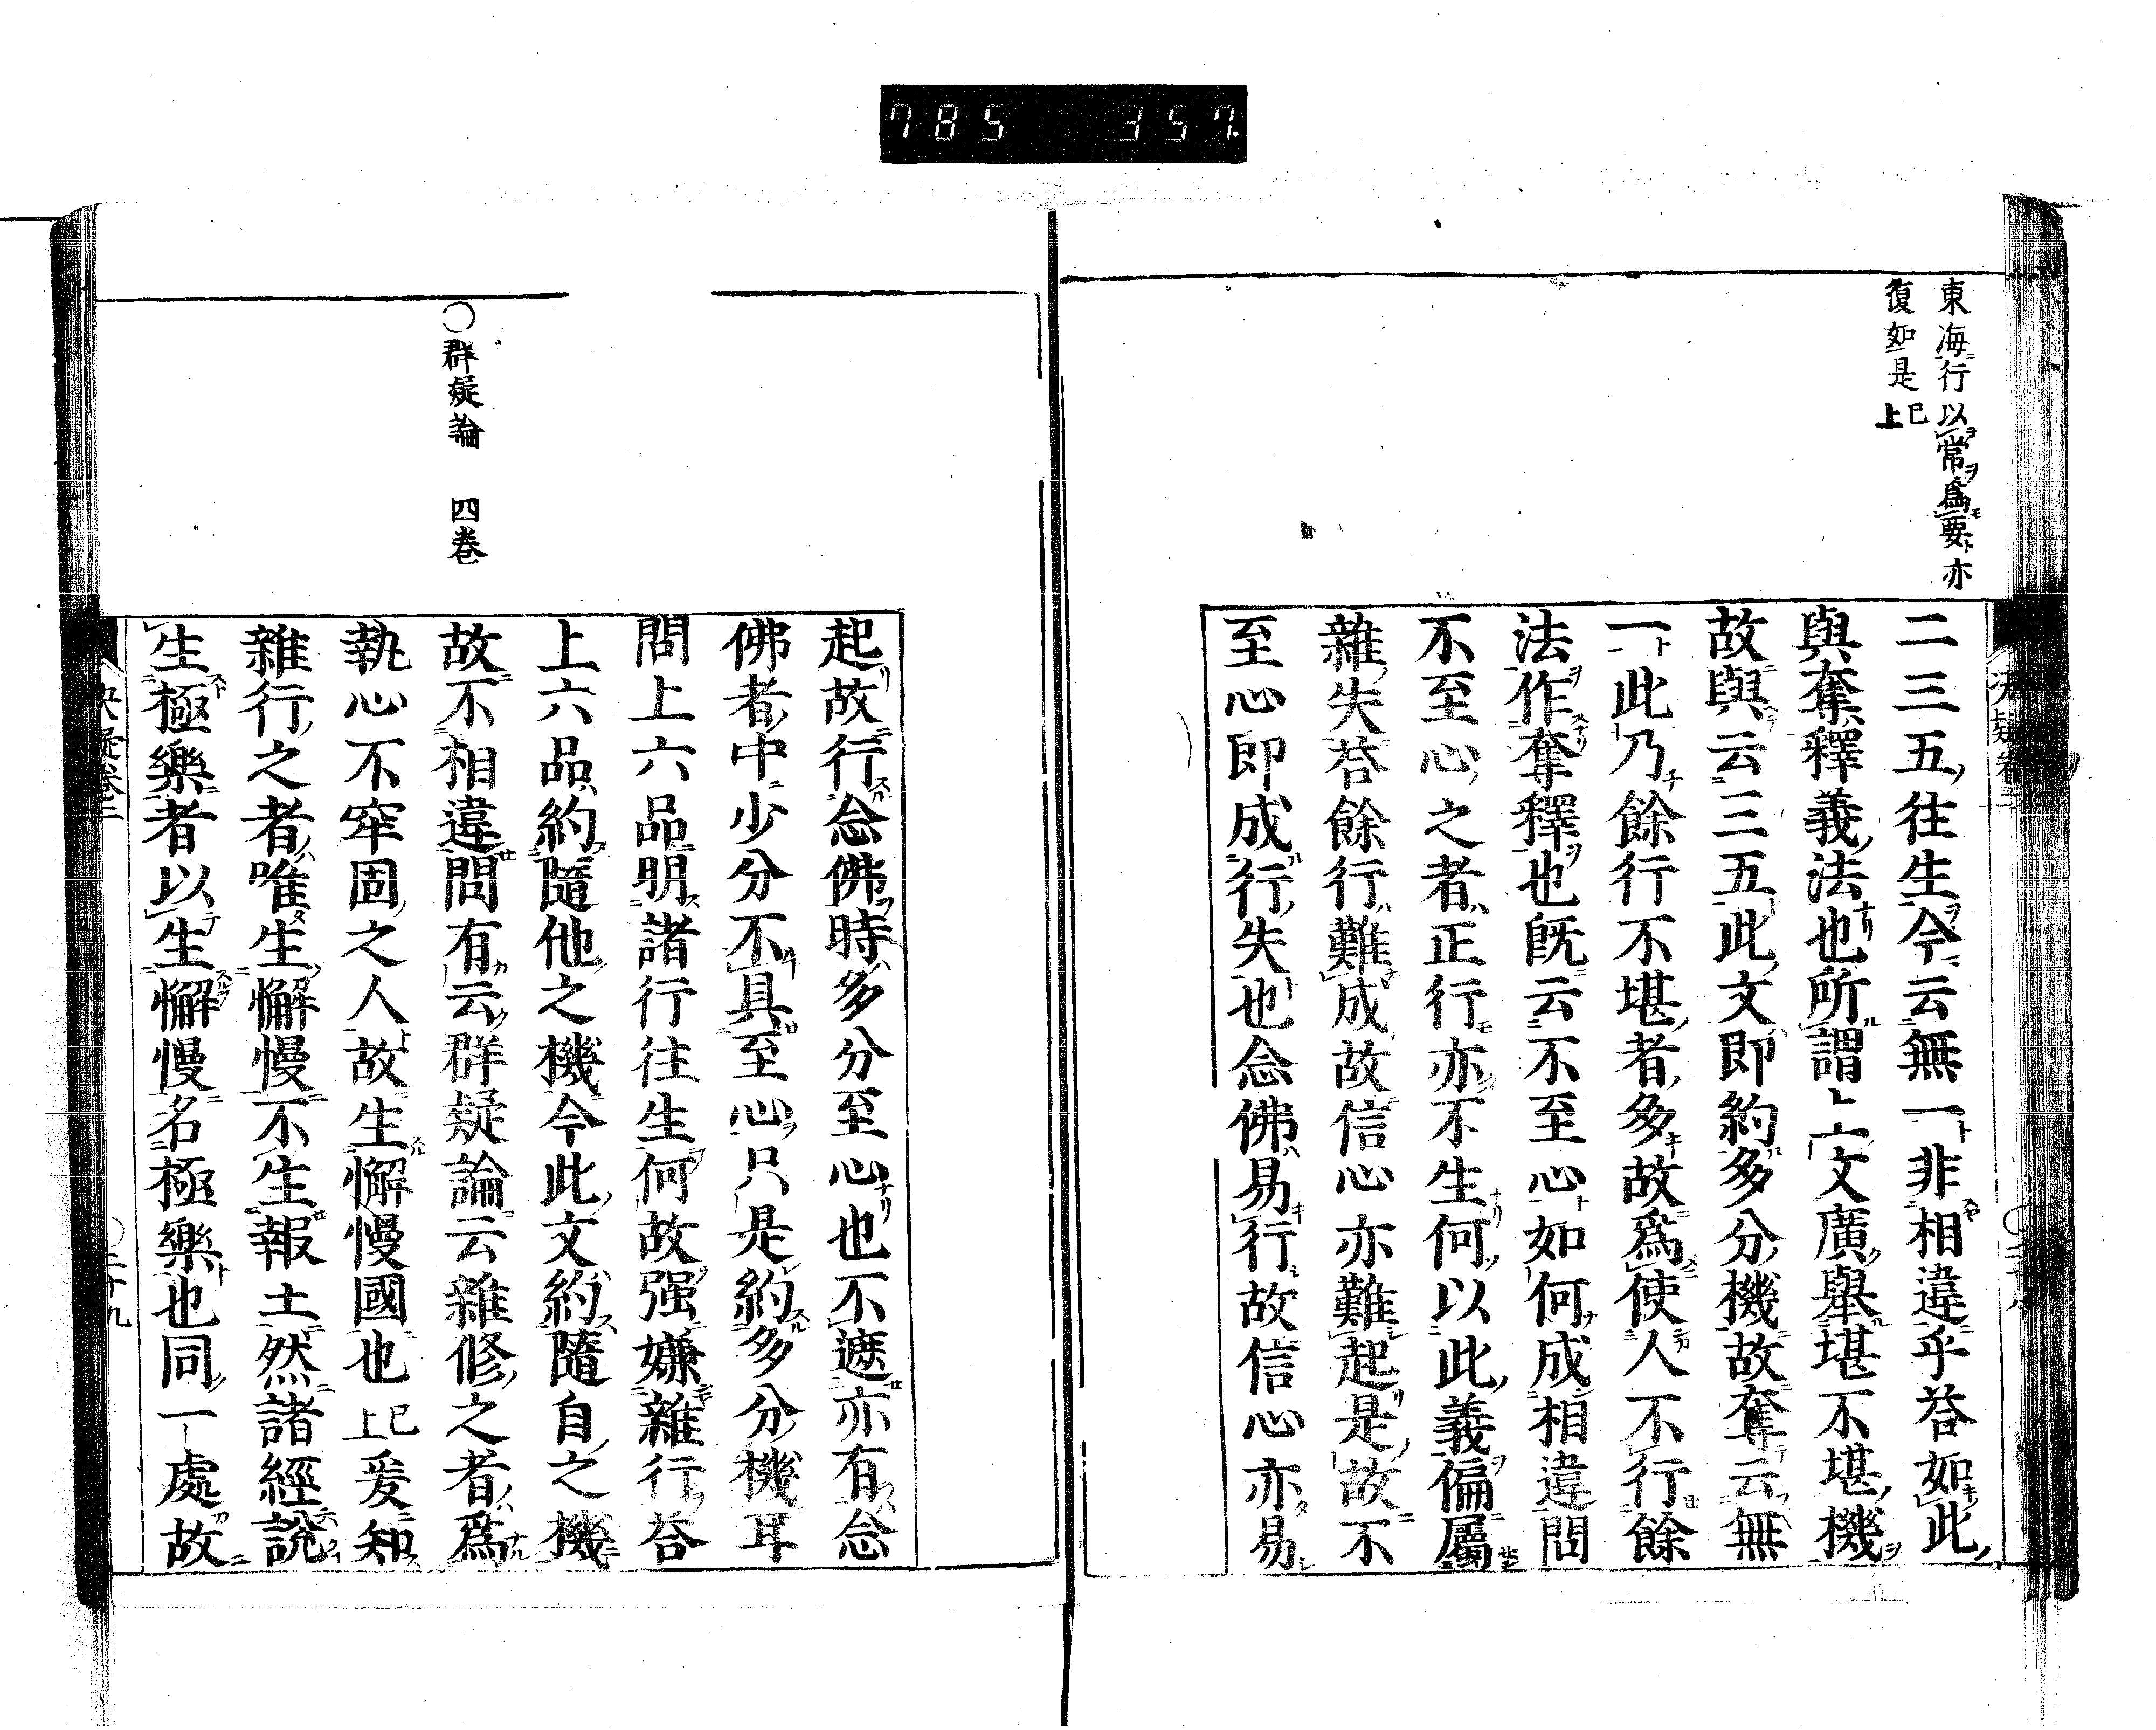 785 357.
東海行以常爲要亦
復如是已上
二三五往生今云無一非相違乎答如此
與奪釋義法也所謂上文廣擧堪不堪機
故與云三五此文即約多分機故奪云無
一此乃餘行不堪者多故爲使人不行餘
法作奪釋也既云不至心如何成相違問
不至心之者正行亦不生何以此義偏屬
雜失答餘行難成故信心亦難起是故不
至心即成行失也念佛易行故信心亦易
〇群疑論 四卷
起故行念佛時多分至心也不遮亦有念
佛者中少分不具至心只是約多分機耳
問上六品明諸行往生何故强嫌雜行答
上六品約隨他之機今此文約隨自之機
故不相違問有云群疑論云雜修之者爲
執心不牢固之人故生懈慢國也已上爰知
雜行之者唯生懈慢不生報土然諸經說
生極樂者以生懈慢名極樂也同一處故
決疑卷二
二十九